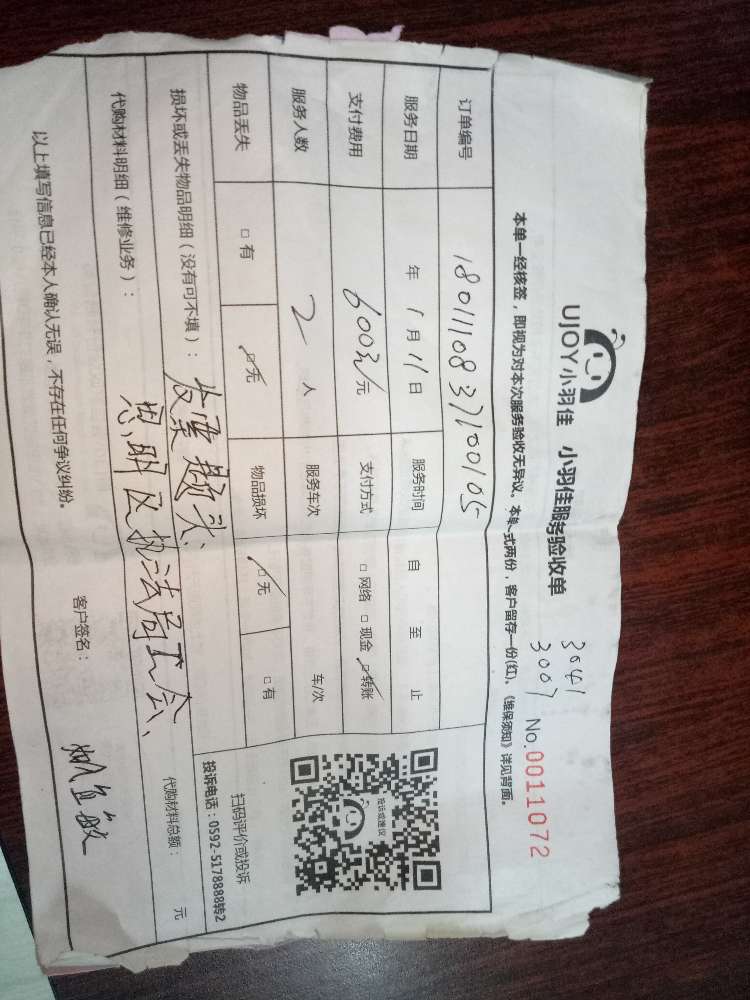 UJOY小羽佳 小羽佳服务验收单
3041
3007
No.0011072
本单一经核签，即视为对本次服务验收无异议。本单一式两份，客户留存一份(红)。《维保须知》详见背面。
订单编号 1801110837100105
服务日期 年 1 月 11 日 服务时间 自 至 止
支付费用 600元 支付方式 □ 网络 □ 现金 ☑ 转账
服务人数 2 人 服务车次 车/次
物品丢失 □ 有 ☑ 无 物品损坏 ☑ 无 □ 有
投诉或建议
扫码评价或投诉
投诉电话：0592-5178888转2
损坏或丢失物品明细（没有可不填）：
发票抬头：
思明区执法局工会
代购材料明细（维修业务）：
代购材料总额： 元
以上填写信息已经本人确认无误，不存在任何争议纠纷。 客户签名：